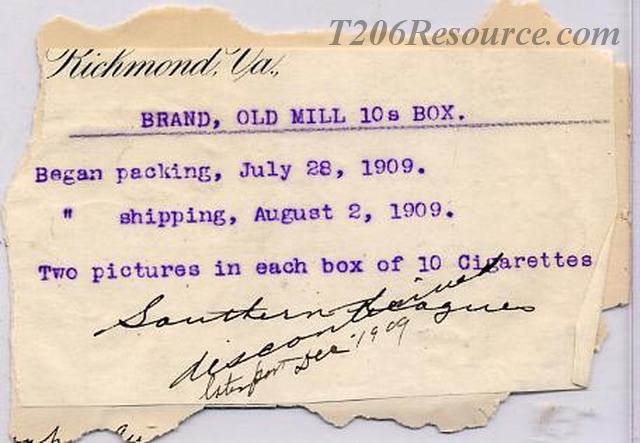 T206Resource.com
Richmond, Va.,
BRAND, OLD MILL 10s BOX.
Began packing, July 28, 1909.
" shipping, August 2, 1909.
Two pictures in each box of 10 Cigarettes
Southern Leagues
discontinued
later part Dec 1909